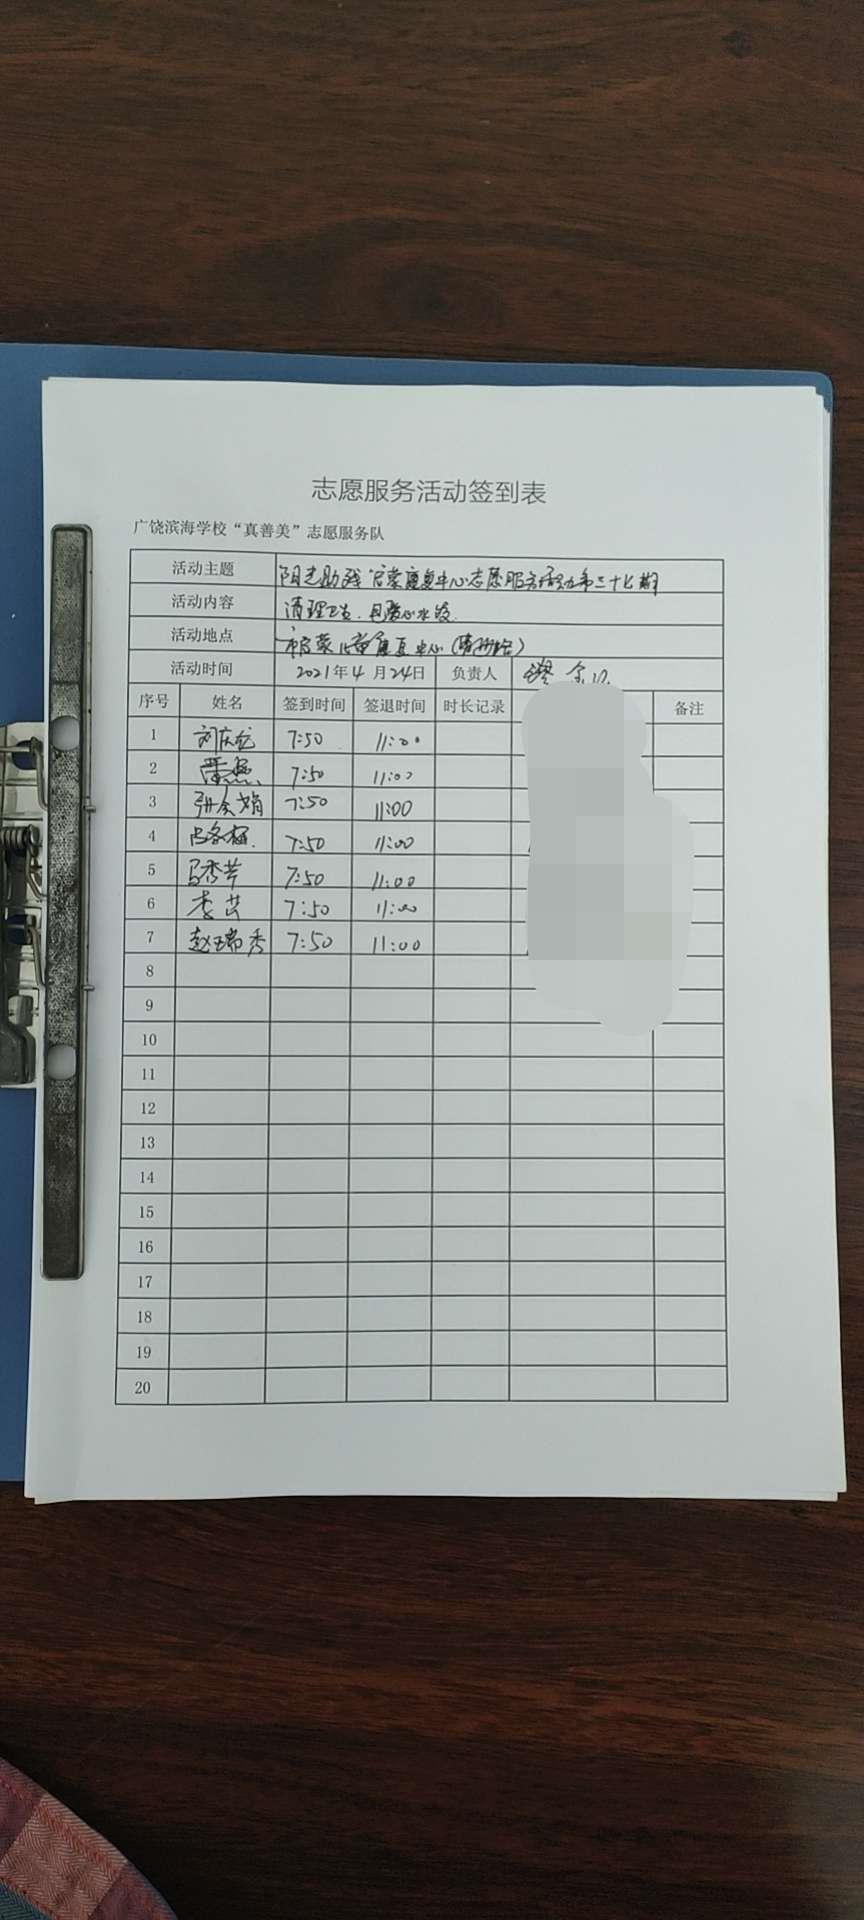 志愿服务活动签到表
广饶滨海学校“真善美”志愿服务队
活动主题 阳光助残 启蒙康复中心志愿服务活动第三十七期
活动内容 清理卫生.包爱心水饺.
活动地点 启蒙儿童康复中心
活动时间 2021年4月24日 负责人
序号 姓名 签到时间 签退时间 时长记录 备注
1 刘庆龙 7:50 11:00
2 7:50 11:00
3 7:50 11:00
4 7:50 11:00
5 马秀芹 7:50 11:00
6 李芸 7:50 11:00
7 赵瑞秀 7:50 11:00
8
9
10
11
12
13
14
15
16
17
18
19
20